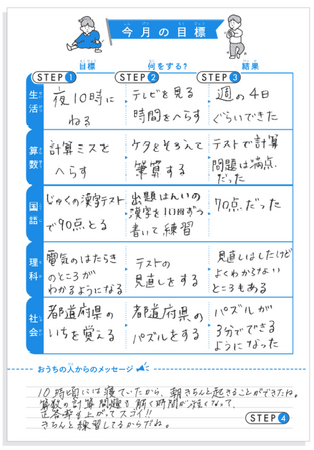 今月の目標
目標 何をする? 結果
STEP 1 STEP 2 STEP 3
生活
夜10時に
ねる
テレビを見る
時間をへらす
週の4日
ぐらいできた
算数
計算ミスを
へらす
ケタをそろえて
筆算する
テストで計算
問題は満点
だった
国語
じゅくの漢字テスト
で90点とる
出題はんいの
漢字を10回ずつ
書いて練習
70点だった
理科
電気のはたらき
のところが
わかるようになる
テストの
見直しをする
見直しはしたけど
よくわからない
ところもある
社会
都道府県の
いちを覚える
都道府県の
パズルをする
パズルが
3分でできる
ようになった
おうちの人からのメッセージ
10時頃には寝ていたから、朝きちんと起きることができたね。
算数の計算問題も解く時間が短くなって、
正答率も上がってスゴイ!!
きちんと練習してるからだね。
STEP 4